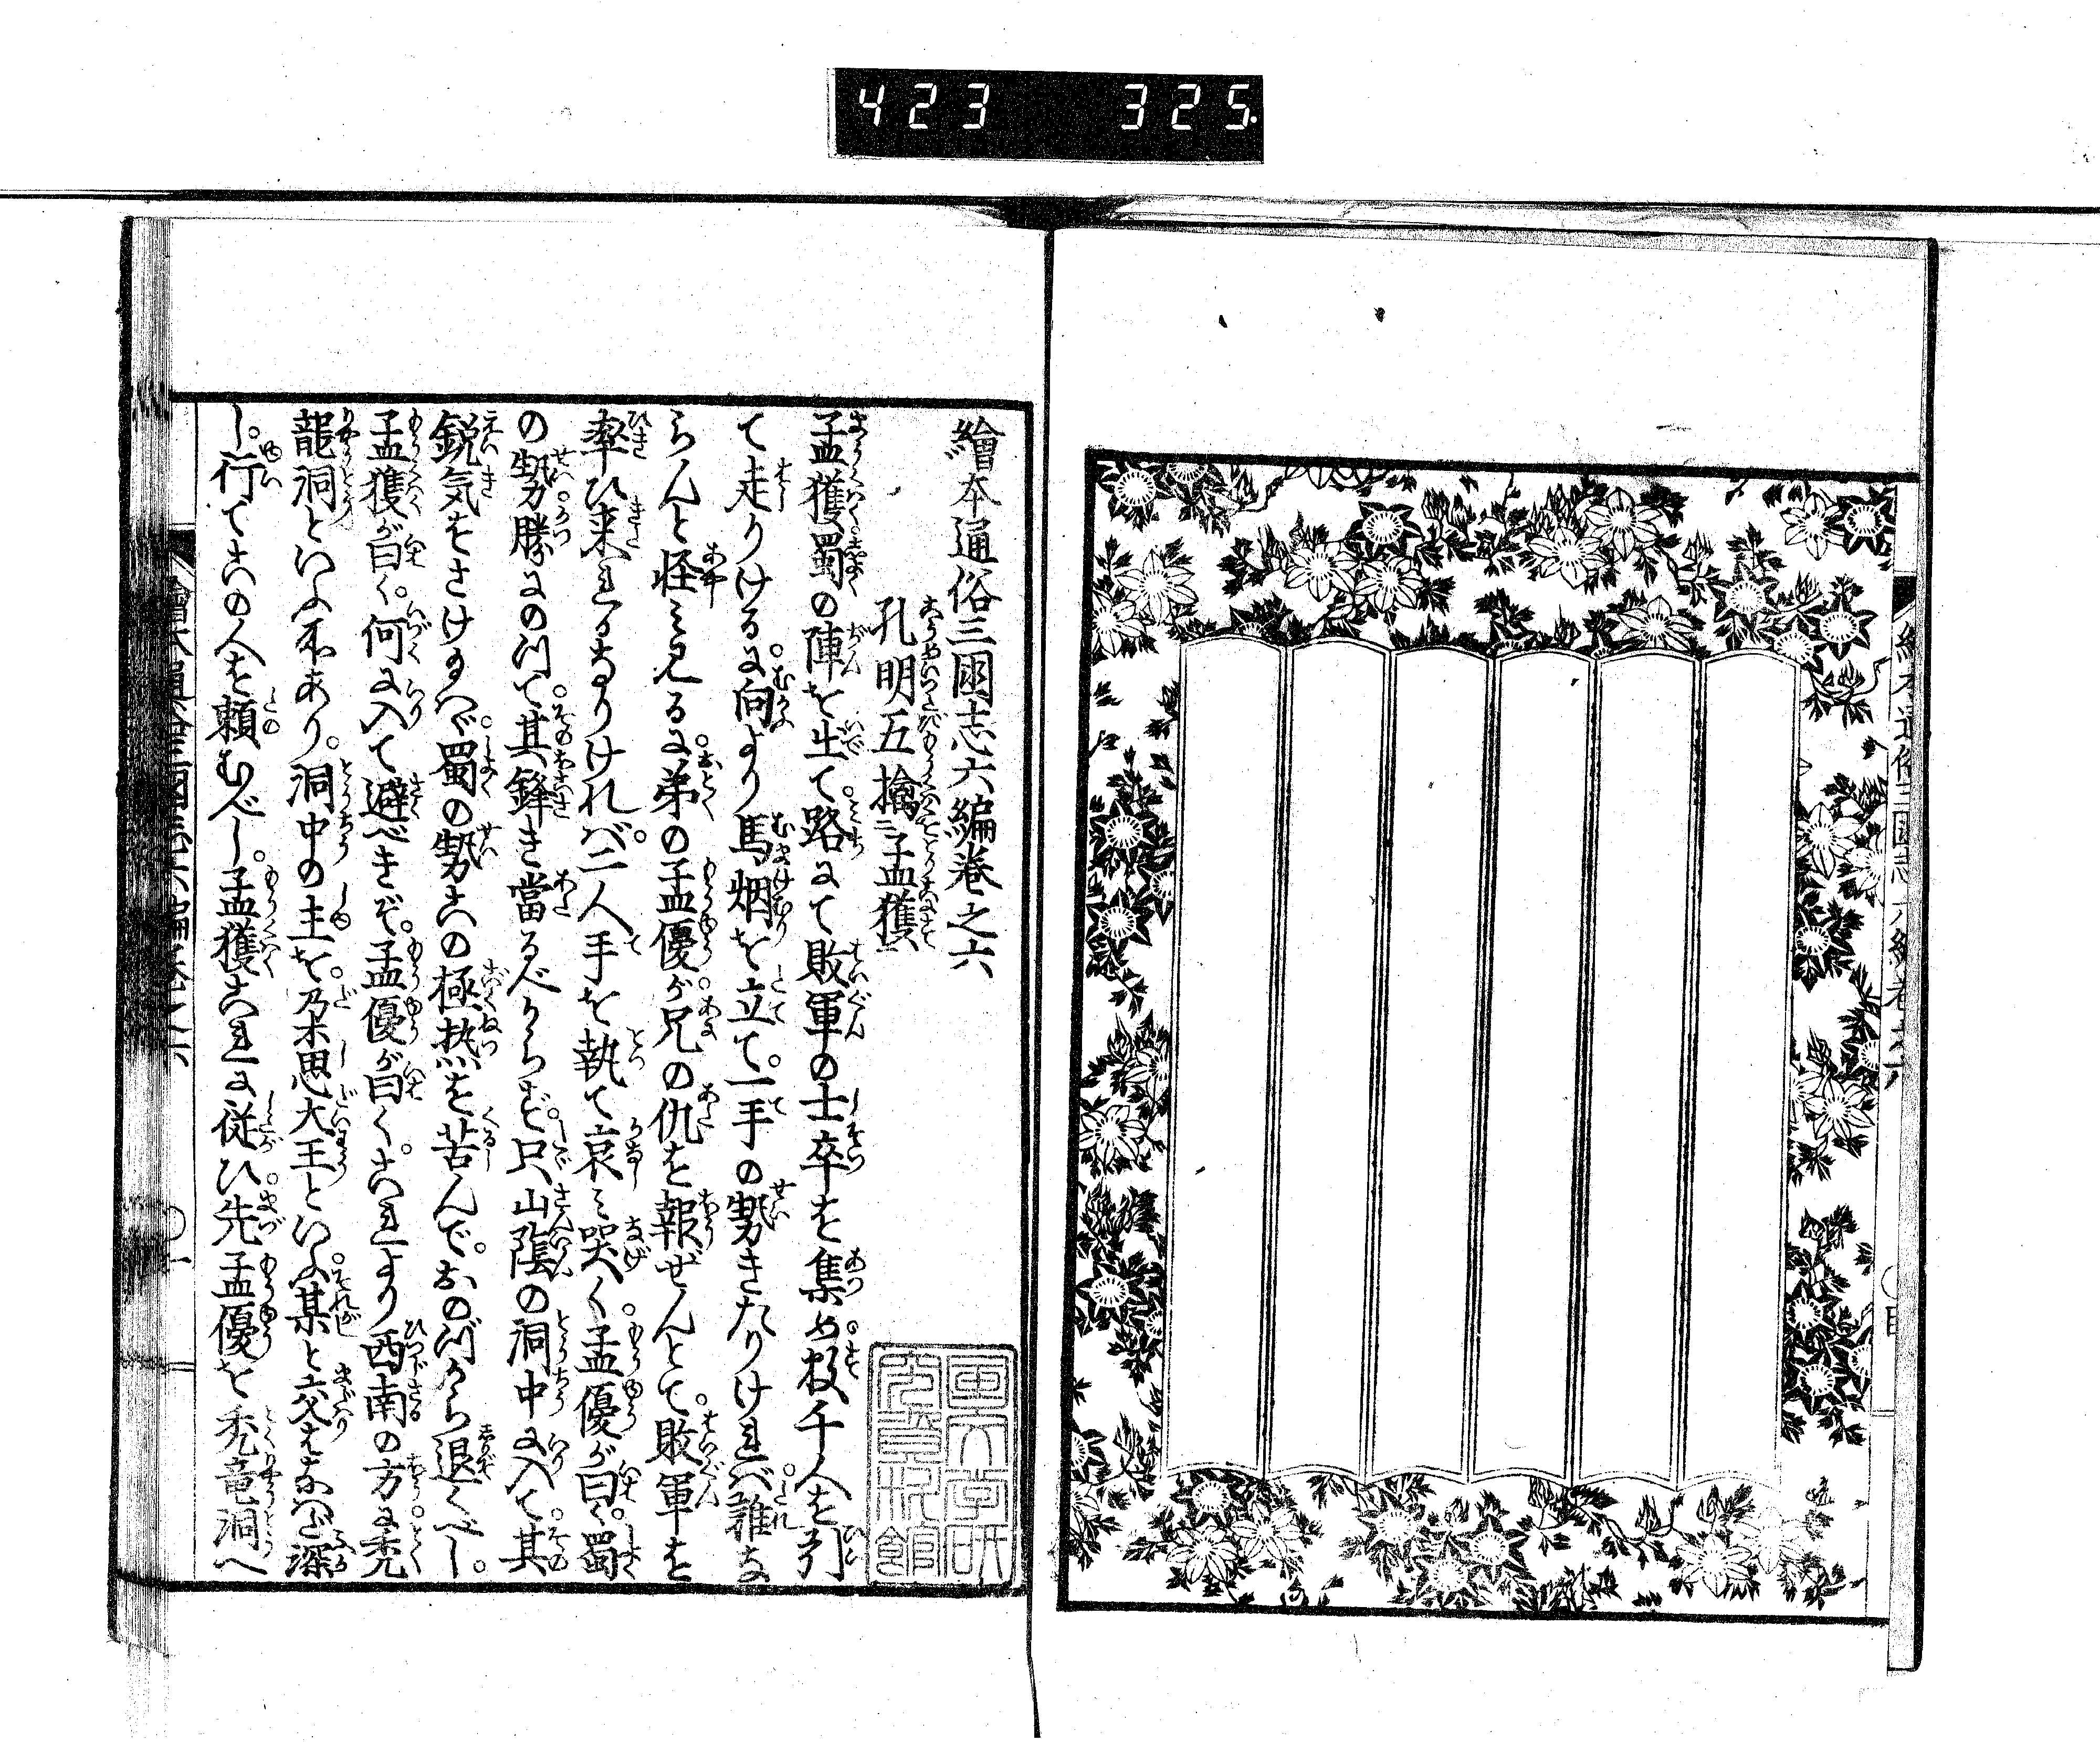 423 325
繪本通俗三國志六編卷之六
孔明五擒孟獲
孟獲蜀の陣を出て。路にて敗軍の士卒を集め。数千人を引
て走りける。に向より馬烟を立て。一手の勢きたりければ。誰な
らんと怪み見るに。弟の孟優が兄の仇を報ぜんとて。敗軍を
率ひ来れるなりければ。二人手を執て哀み哭く。孟優が曰く。蜀
の勢勝にのつて。其鋒き當るべからず。只山陰の洞中に入て。其
鋭気をさけ給へば。蜀の勢この極热を苦んで。おのづから退くべし。
孟獲が曰く。何に入て避べきぞ。孟優が曰く。これより西南の方に。禿
龍洞といふ所あり。洞中の主を。朶思大王といふ。某と交はなはだ深
し。行てこの人を頼むべし。孟獲これに従ひ。先孟優を禿竜洞へ